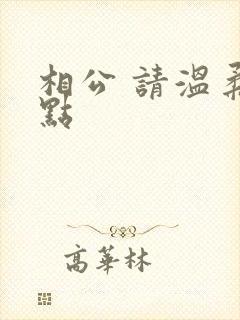 相公 請溫柔
點
高華林